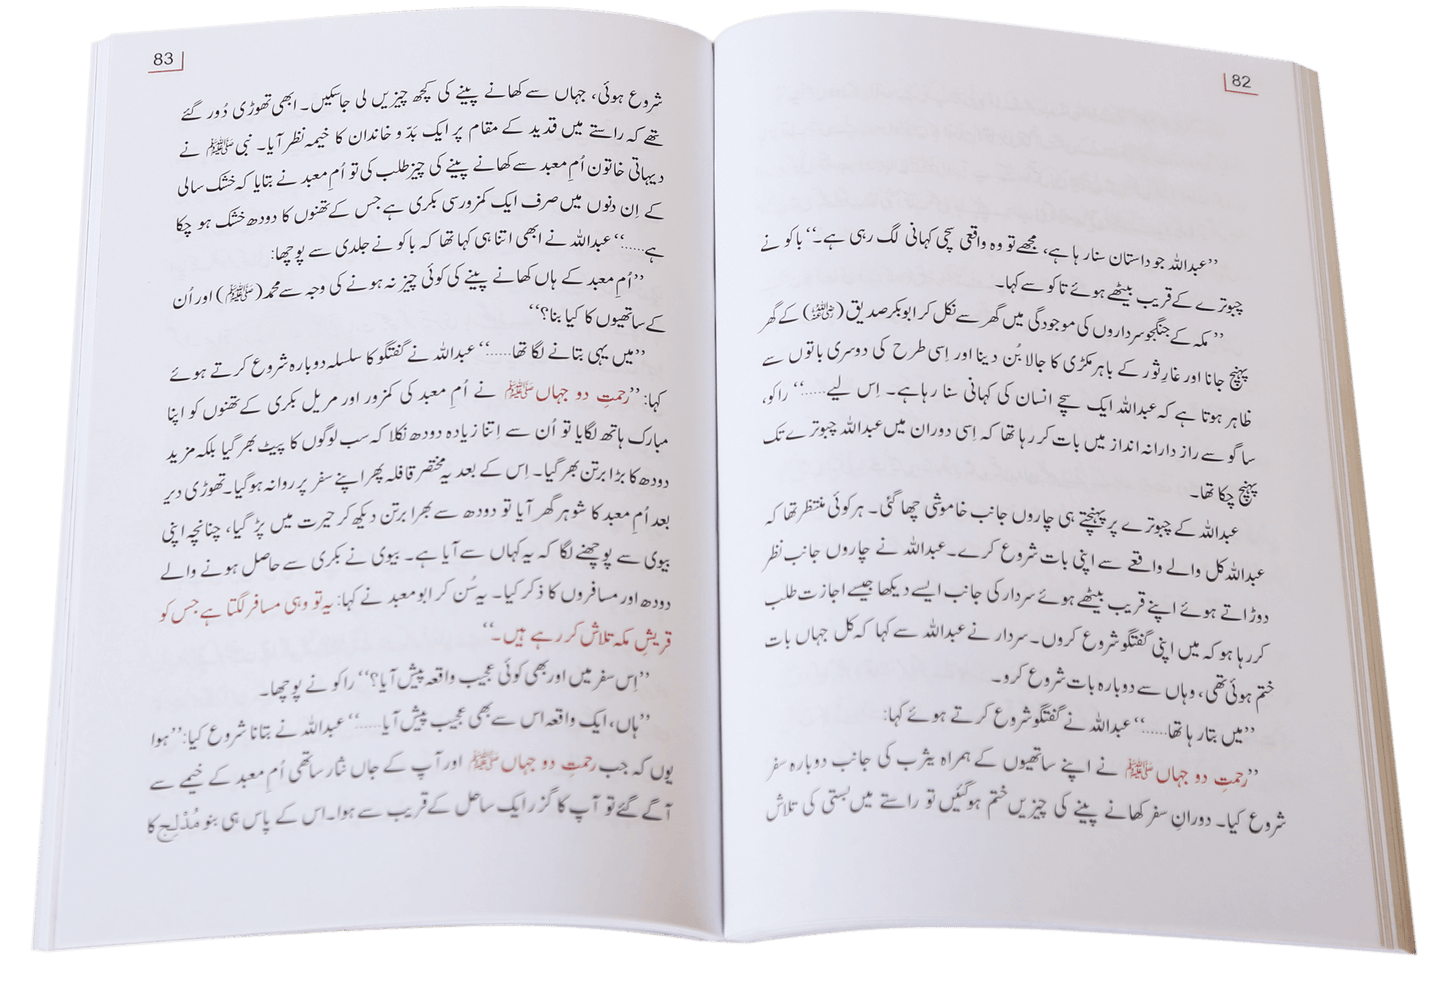 82
’’عبداللہ جو داستان سنا رہا ہے، مجھے تو وہ واقعی سچی کہانی لگ رہی ہے۔‘‘ باکو نے
چبوترے کے قریب بیٹھے ہوئے تاکو سے کہا۔
’’مکہ کے جنگجو سرداروں کی موجودگی میں گھر سے نکل کر ابوبکر صدیق (رضی اللہ عنہ) کے گھر
پہنچ جانا اور غارِ ثور کے باہر مکڑی کا جالا بُن دینا اور اِسی طرح کی دوسری باتوں سے
ظاہر ہوتا ہے کہ عبداللہ ایک سچے انسان کی کہانی سنا رہا ہے۔ اِس لیے.....‘‘ راکو،
ساگو سے راز دارانہ انداز میں بات کر رہا تھا کہ اِسی دوران میں عبداللہ چبوترے تک
پہنچ چکا تھا۔
عبداللہ کے چبوترے پر پہنچتے ہی چاروں جانب خاموشی چھا گئی۔ ہر کوئی منتظر تھا کہ
عبداللہ کل والے واقعے سے اپنی بات شروع کرے۔ عبداللہ نے چاروں جانب نظر
دوڑاتے ہوئے اپنے قریب بیٹھے ہوئے سردار کی جانب ایسے دیکھا جیسے اجازت طلب
کر رہا ہو کہ میں اپنی گفتگو شروع کروں۔ سردار نے عبداللہ سے کہا کہ کل جہاں بات
ختم ہوئی تھی، وہاں سے دوبارہ بات شروع کرو۔
’’میں بتا رہا تھا......‘‘ عبداللہ نے گفتگو شروع کرتے ہوئے کہا:
’’رحمتِ دو جہاں ﷺ نے اپنے ساتھیوں کے ہمراہ یثرب کی جانب دوبارہ سفر
شروع کیا۔ دورانِ سفر کھانے پینے کی چیزیں ختم ہو گئیں تو راستے میں بستی کی تلاش
83
شروع ہوئی، جہاں سے کھانے پینے کی کچھ چیزیں لی جا سکیں۔ ابھی تھوڑی دُور گئے
تھے کہ راستے میں قدید کے مقام پر ایک بدّو خاندان کا خیمہ نظر آیا۔ نبی ﷺ نے
دیہاتی خاتون اُمِ معبد سے کھانے پینے کی چیز طلب کی تو اُمِ معبد نے بتایا کہ خشک سالی
کے اِن دنوں میں صرف ایک کمزور سی بکری ہے جس کے تھنوں کا دودھ خشک ہو چکا
ہے.....‘‘ عبداللہ نے ابھی اتنا ہی کہا تھا کہ باکو نے جلدی سے پوچھا:
’’اُمِ معبد کے ہاں کھانے پینے کی کوئی چیز نہ ہونے کی وجہ سے محمد (ﷺ) اور اُن
کے ساتھیوں کا کیا بنا؟‘‘
’’میں یہی بتانے لگا تھا.....‘‘ عبداللہ نے گفتگو کا سلسلہ دوبارہ شروع کرتے ہوئے
کہا: ’’رحمتِ دو جہاں ﷺ نے اُمِ معبد کی کمزور اور مریل بکری کے تھنوں کو اپنا
مبارک ہاتھ لگایا تو اُن سے اِتنا زیادہ دودھ نکلا کہ سب لوگوں کا پیٹ بھر گیا بلکہ مزید
دودھ کا بڑا برتن بھر گیا۔ اِس کے بعد یہ مختصر قافلہ پھر اپنے سفر پر روانہ ہو گیا۔ تھوڑی دیر
بعد اُمِ معبد کا شوہر گھر آیا تو دودھ سے بھرا برتن دیکھ کر حیرت میں پڑ گیا، چنانچہ اپنی
بیوی سے پوچھنے لگا کہ یہ کہاں سے آیا ہے۔ بیوی نے بکری سے حاصل ہونے والے
دودھ اور مسافروں کا ذکر کیا۔ یہ سُن کر ابو معبد نے کہا: یہ تو وہی مسافر لگتا ہے جس کو
قریشِ مکہ تلاش کر رہے ہیں۔‘‘
’’اِس سفر میں اور بھی کوئی عجیب واقعہ پیش آیا؟‘‘ راکو نے پوچھا۔
’’ہاں، ایک واقعہ اس سے بھی عجیب پیش آیا.....‘‘ عبداللہ نے بتانا شروع کیا: ’’ہوا
یوں کہ جب رحمتِ دو جہاں ﷺ اور آپ کے جاں نثار ساتھی اُمِ معبد کے خیمے سے
آگے گئے تو آپ کا گزر ایک ساحل کے قریب سے ہوا۔ اس کے پاس ہی بنو مُدْلِج کا